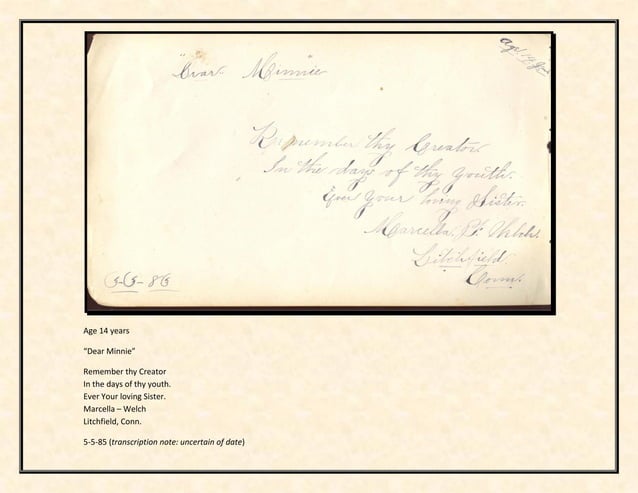 Age 14 y
"Dear Minnie
Remember thy Creator
In the days of thy youth.
Ever Your loving Sister.
Marcella. Welch.
Litchfield.
Conn.
Age 14 years
“Dear Minnie”
Remember thy Creator
In the days of thy youth.
Ever Your loving Sister.
Marcella – Welch
Litchfield, Conn.
5-5-85 (transcription note: uncertain of date)